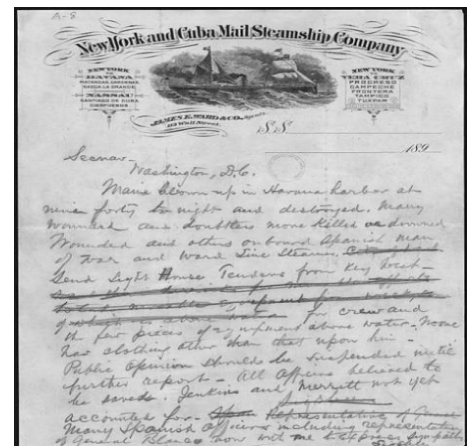 A-8
New York and Cuba Mail Steamship Company
NEW YORK
HAVANA
MATANZAS, CARDENAS
SAGUA LA GRANDE
NASSAU
SANTIAGO DE CUBA
CIENFUEGOS
NEW YORK
VERA CRUZ
PROGRESO
CAMPECHE
FRONTERA
TAMPICO
TUXPAM
JAMES E. WARD & CO. Agents
113 Wall Street
S.S.
189
Secnav-
Washington, D.C.
Maine blown up in Havana harbor at
nine forty to night and destroyed. Many
wounded and doubtless more killed or drowned
Wounded and others on board Spanish man
of war and Ward Line Steamer.
Send Light House Tenders from Key West-
for crew and
the few pieces of equipment above water - None
has clothing other than that upon him -
Public opinion should be suspended until
further report - All officers believed to
be saved. Jenkins and Merritt not yet
accounted for - Representative of
Many Spanish officers including representatives
of General Blanco now with me to express sympathy